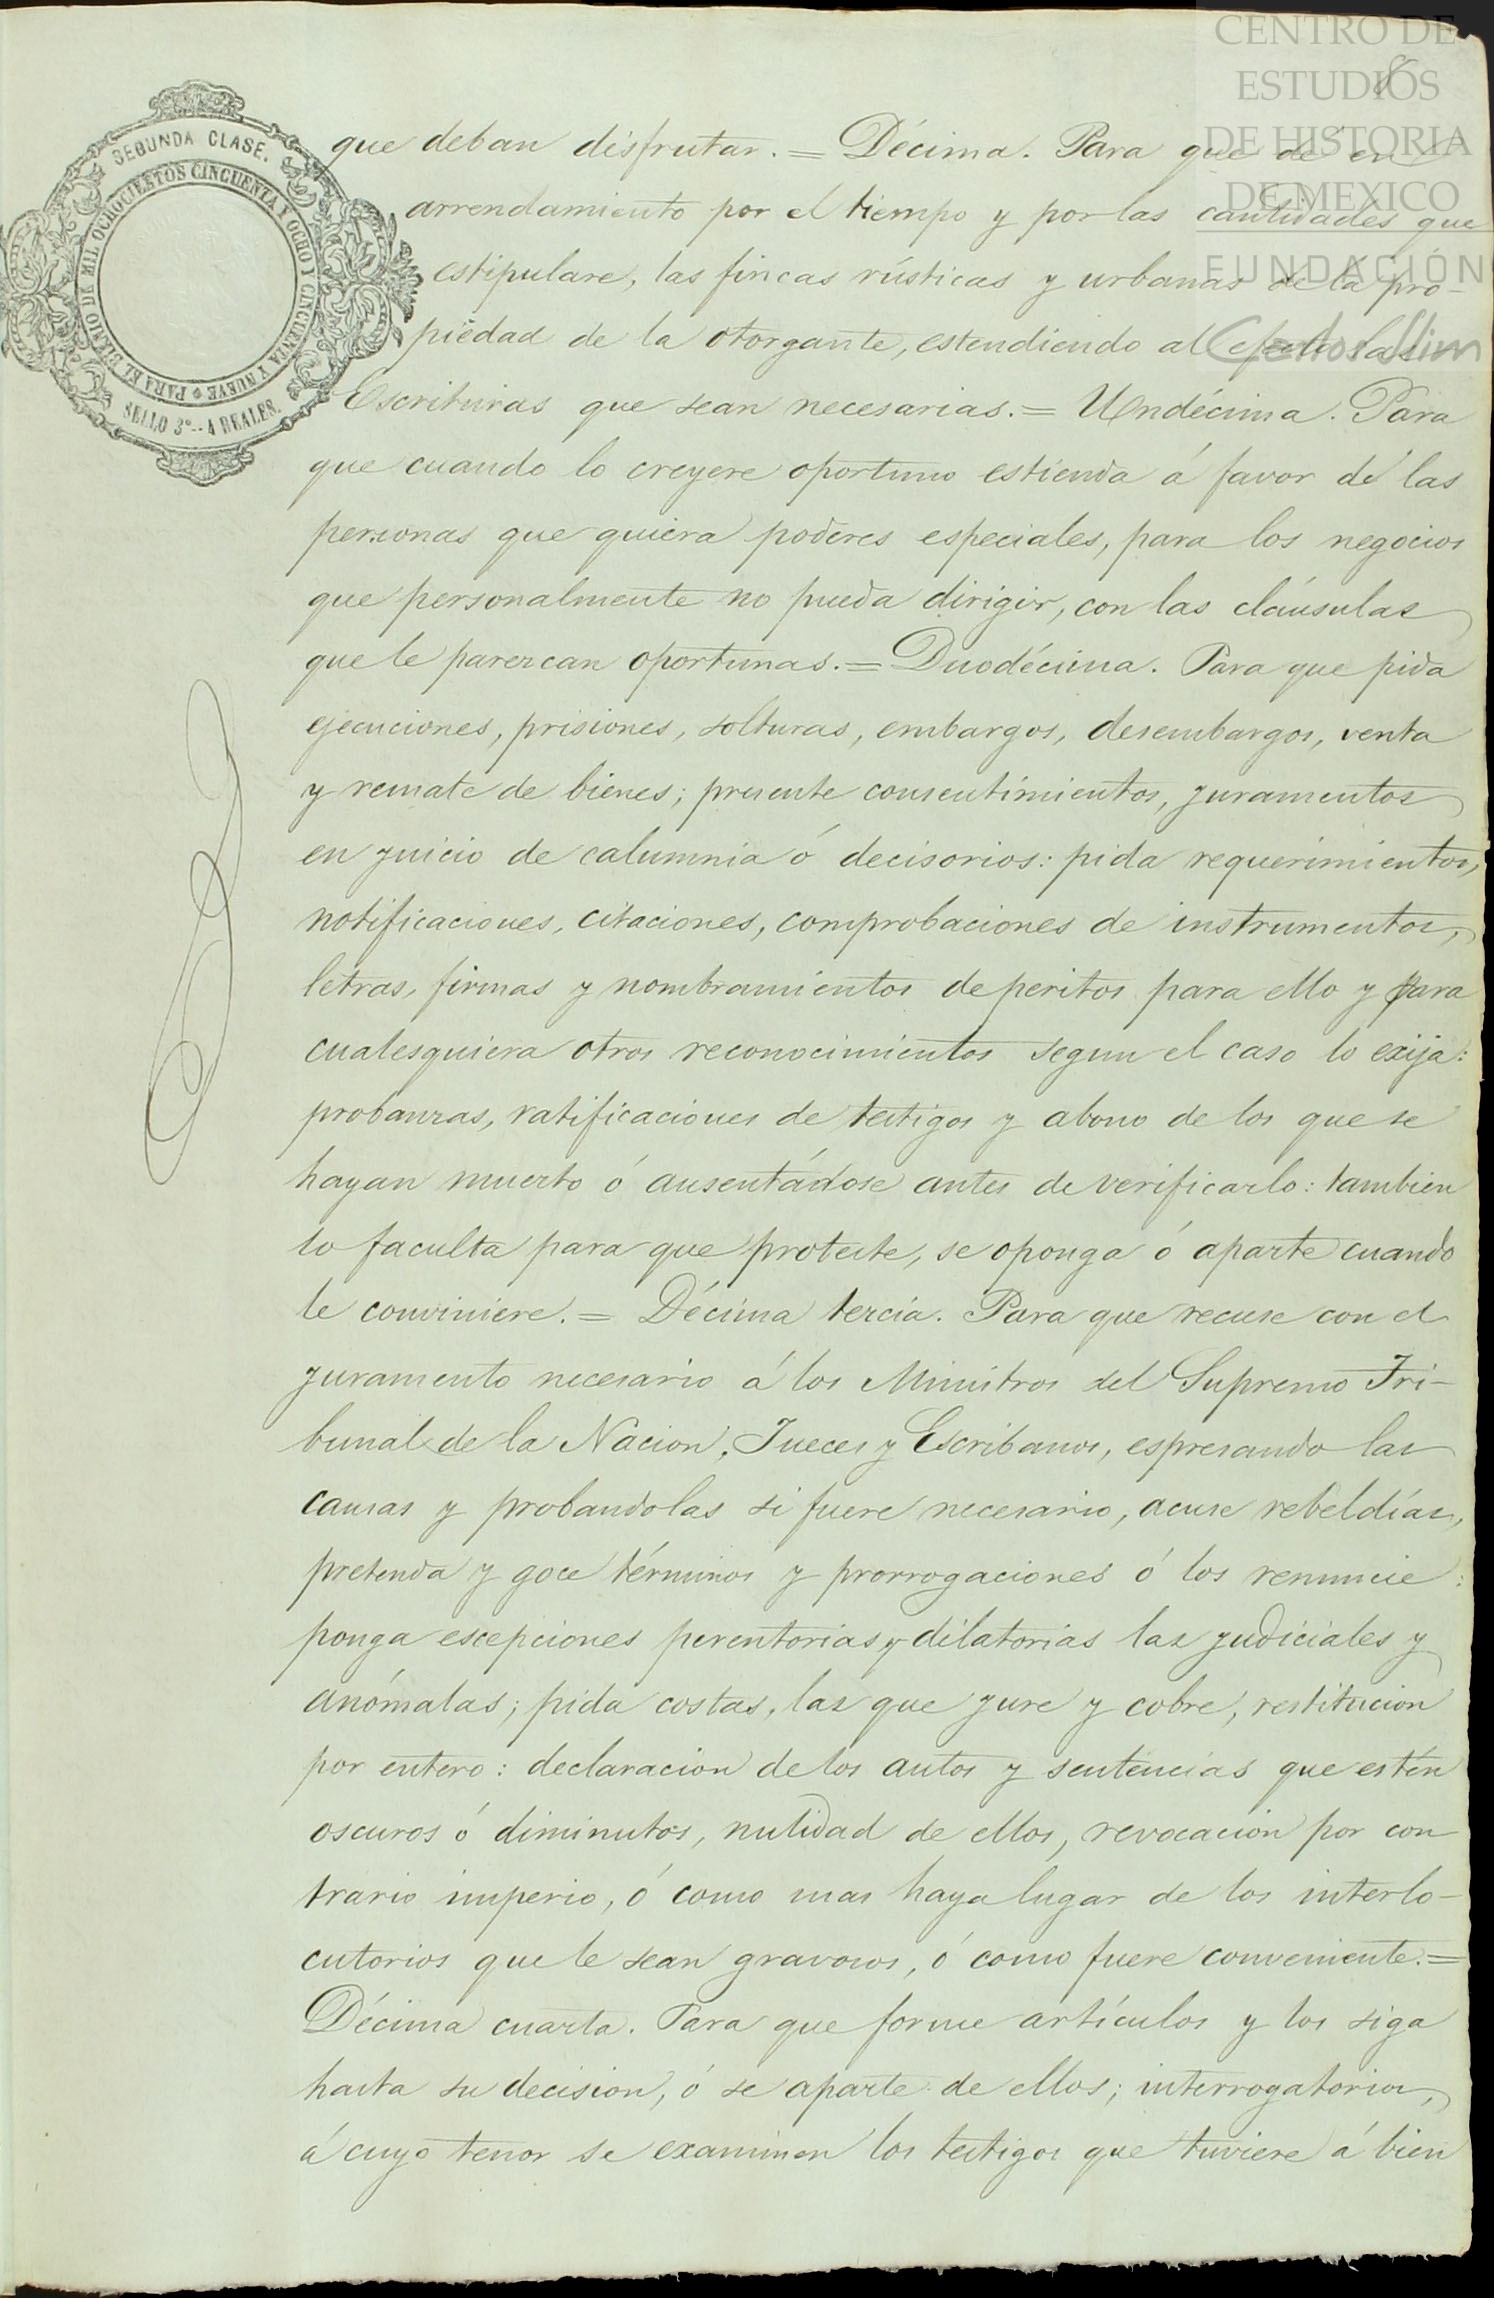 CENTRO DE
ESTUDIOS
DE HISTORIA
DE MEXICO
FUNDACIÓN
Carlos Slim
8
SEGUNDA CLASE.
PARA EL BIENIO DE MIL OCHOCIENTOS CINCUENTA Y OCHO Y CINCUENTA Y NUEVE
SELLO 3º--4 REALES.
que deban disfrutar.= Décima. Para que dé en
arrendamiento por el tiempo y por las cantidades que
estipulare, las fincas rústicas y urbanas de la pro-
piedad de la otorgante, estendiendo al efecto las
Escrituras que sean necesarias.= Undécima. Para
que cuando lo creyere oportuno estienda á favor de las
personas que quiera poderes especiales, para los negocios
que personalmente no pueda dirigir, con las cláusulas
que le parezcan oportunas.= Duodécima. Para que pida
ejecuciones, prisiones, solturas, embargos, desembargos, venta
y remate de bienes; presente consentimientos, juramentos
en juicio de calumnia ó decisorios: pida requerimientos,
notificaciones, citaciones, comprobaciones de instrumentos,
letras, firmas y nombramientos de peritos para ello y para
cualesquiera otros reconocimientos segun el caso lo exija:
probanzas, ratificaciones de testigos y abono de los que se
hayan muerto ó ausentádose antes de verificarlo: tambien
lo faculta para que proteste, se oponga ó aparte cuando
le conviniere.= Décima tercia. Para que recuse con el
juramento necesario á los Ministros del Supremo Tri-
bunal de la Nacion, Jueces y Escribanos, espresando las
causas y probandolas si fuere necesario, acuse rebeldías,
pretenda y goce términos y prorrogaciones ó los renuncie:
ponga escepciones perentorias y dilatorias las judiciales y
anómalas; pida costas, las que jure y cobre, restitucion
por entero: declaracion de los autos y sentencias que estén
oscuros ó diminutos, nulidad de ellos, revocacion por con
trario imperio, ó como mas haya lugar de los interlo-
cutorios que le sean gravosos, ó como fuere conveniente.=
Décima cuarta. Para que forme artículos y los siga
hasta su decision, ó se aparte de ellos; interrogatorios,
á cuyo tenor se examinen los testigos que tuviere á bien